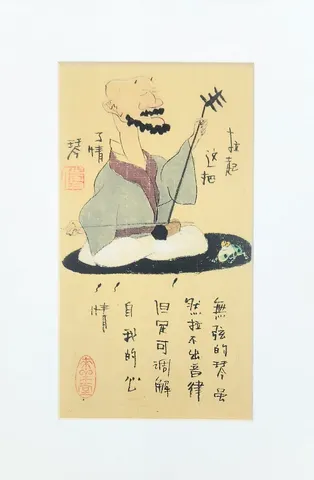 拉起
这把
了情
琴
無弦的琴虽
然拉不出音律
但是可調解
自我的心
情